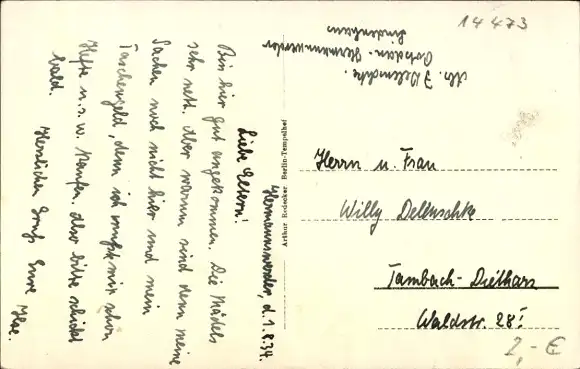 Hermannswerder, d. 1.8.34.
Liebe Eltern!
Bin hier gut angekommen. Die Mädels
sehr nett. Aber warum sind denn meine
Sachen noch nicht hier und mein
Taschengeld, denn ich mußte mir schon
Hefte u.s.w. kaufen. Also bitte schickt
bald.
Herzlichen Gruß Eure Ilse.
Arthur Rodecker Berlin-Tempelhof
14473
Abs. J. Delluschke.
Potsdam-Hermannswerder
Lindenhaus
Herrn u. Frau
Willy Delluschke
Tambach-Dietharz
Waldstr. 28I
2,- €